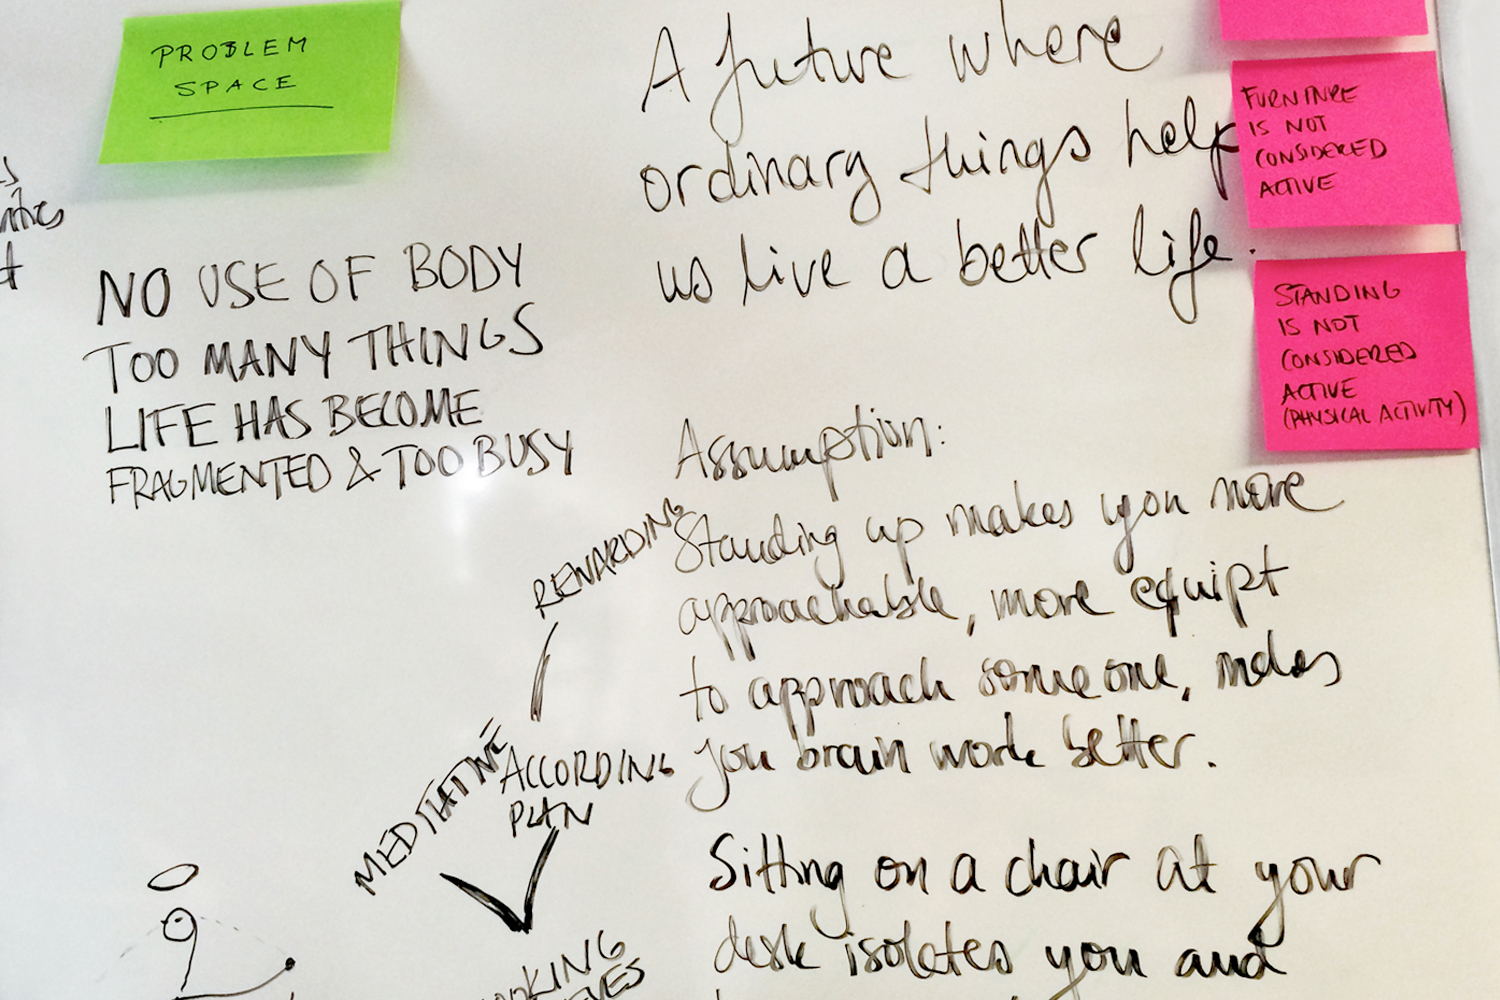 PROBLEM
SPACE
NO USE OF BODY
TOO MANY THINGS
LIFE HAS BECOME
FRAGMENTED & TOO BUSY
A future where
ordinary things help
us live a better life.
FURNITURE
IS NOT
CONSIDERED
ACTIVE
STANDING
IS NOT
CONSIDERED
ACTIVE
(PHYSICAL ACTIVITY)
Assumption:
Standing up makes you more
approachable, more equipt
to approach someone, makes
you brain work better.
Sitting on a chair at your
desk isolates you and
REWARDING
MEDITATIVE
ACCORDING
PLAN